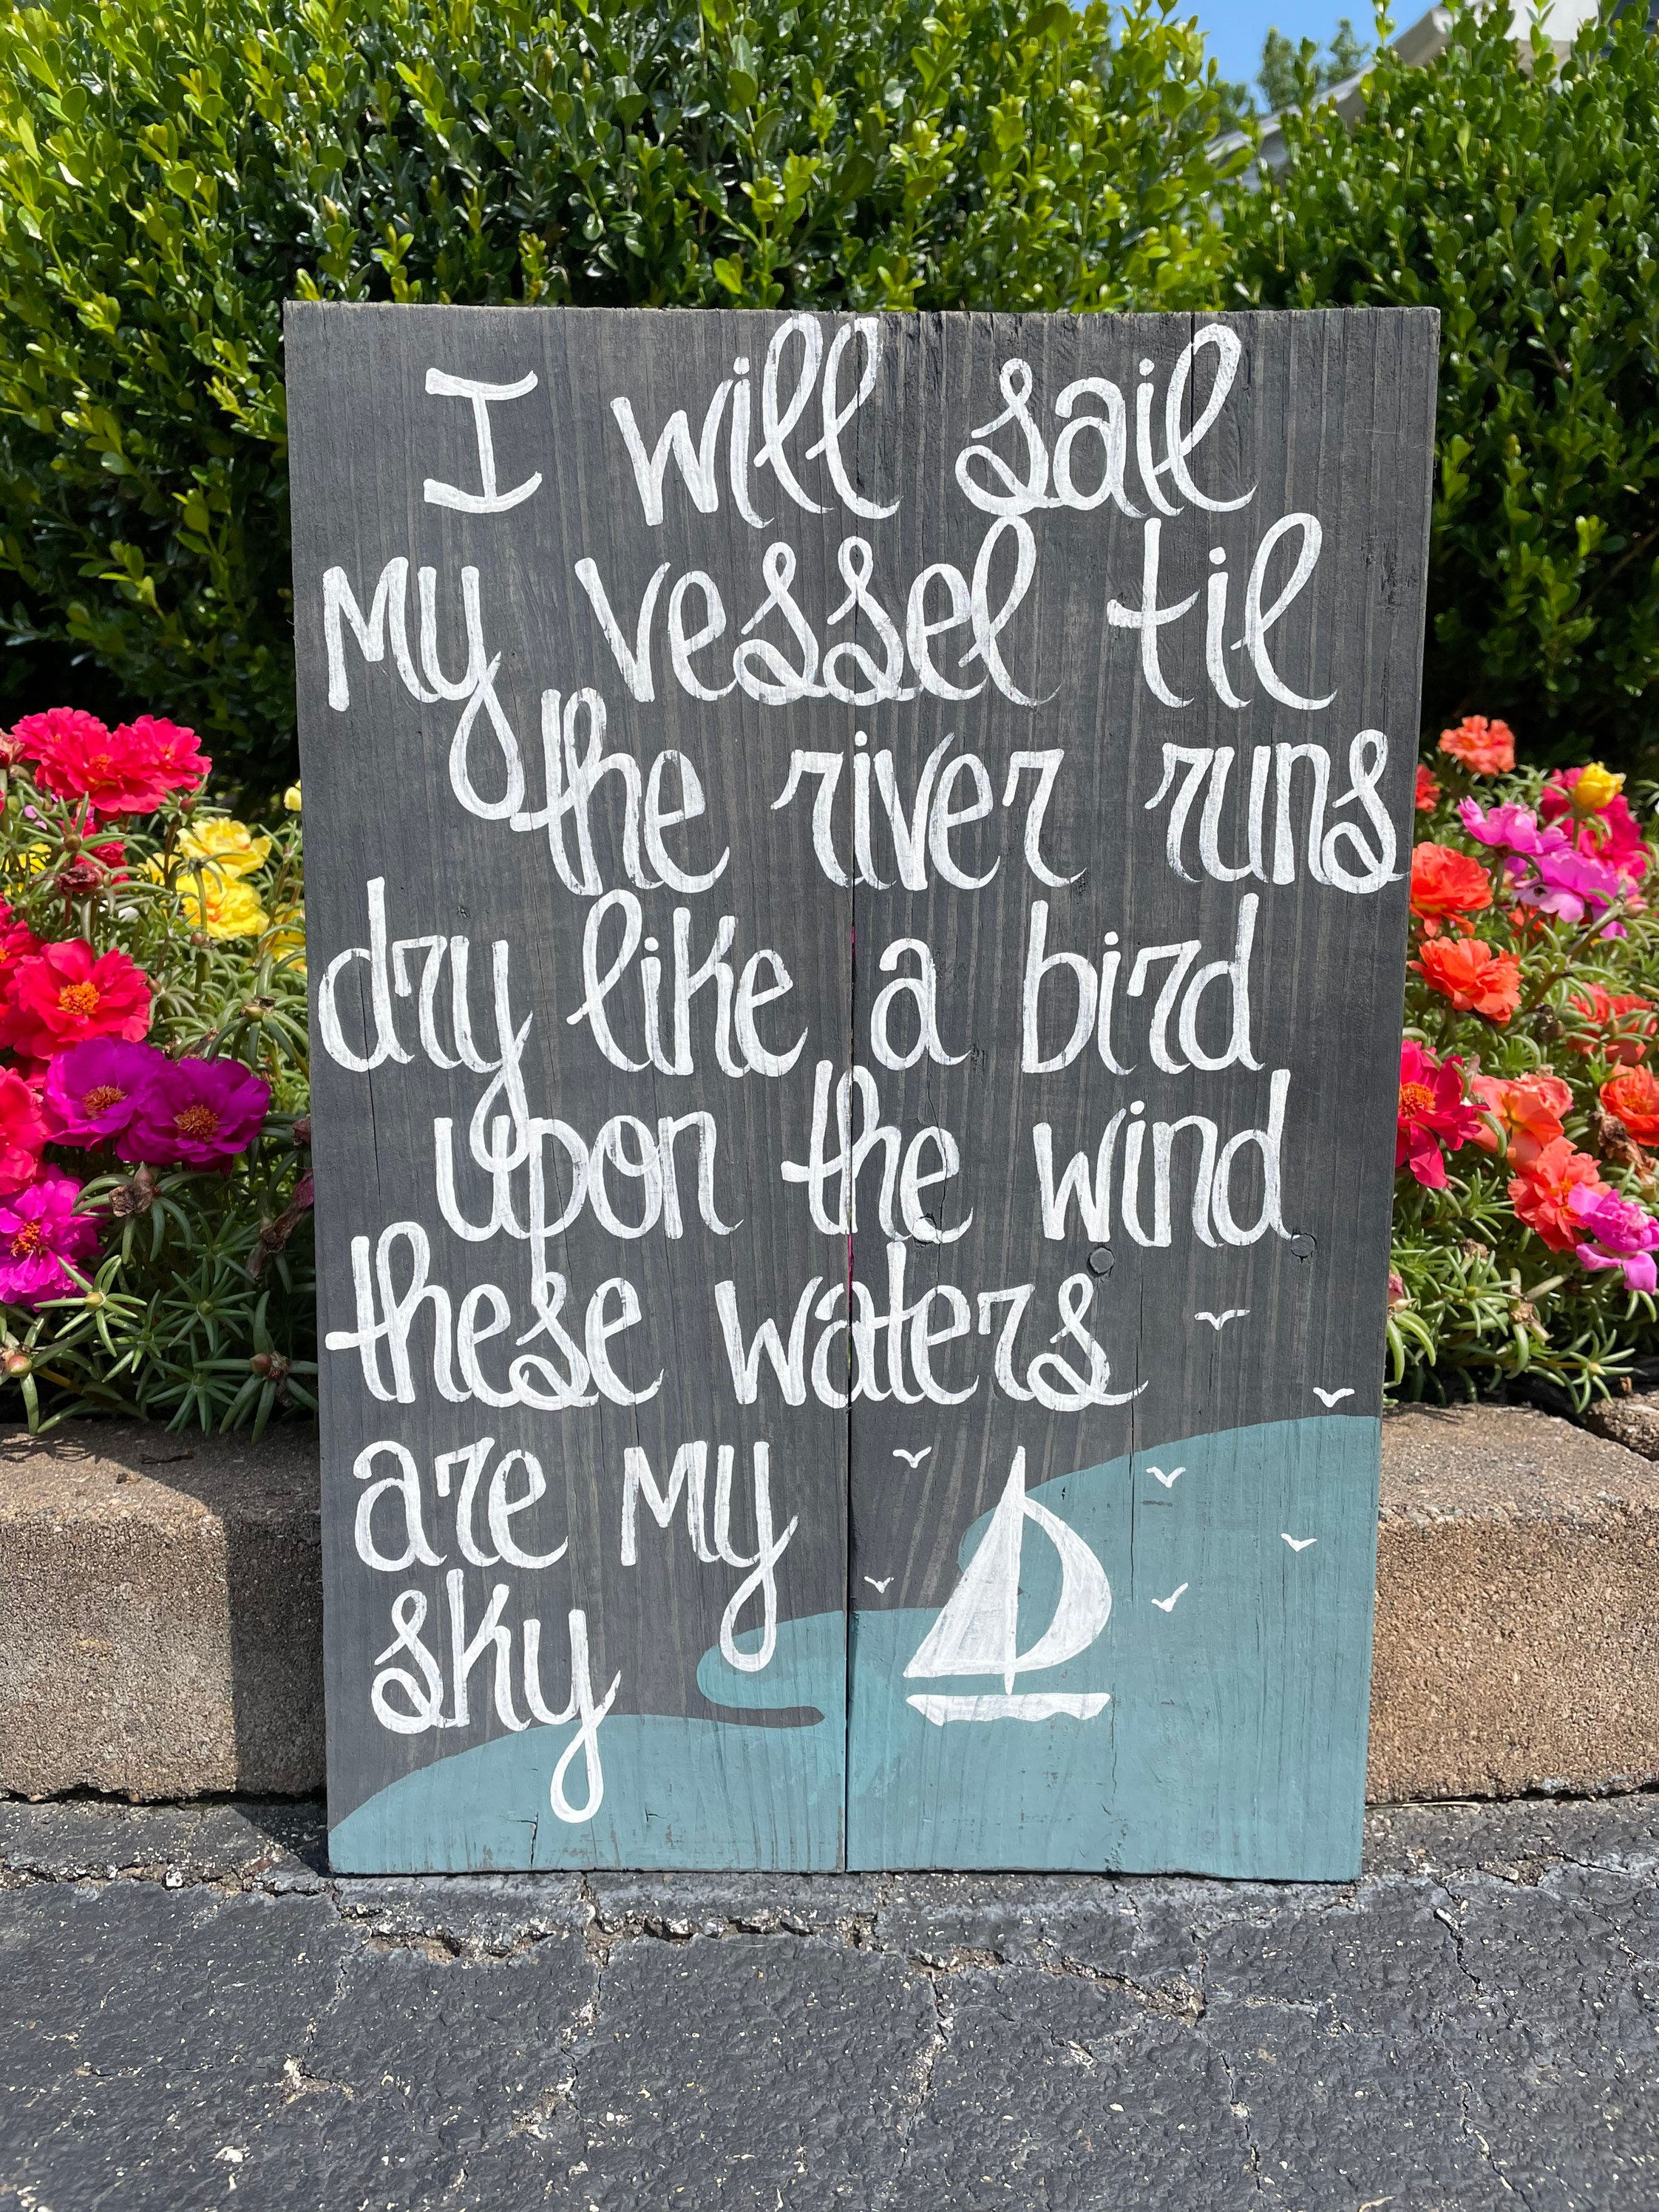 I will sail
my vessel til
the river runs
dry like a bird
upon the wind
these waters
are my
sky